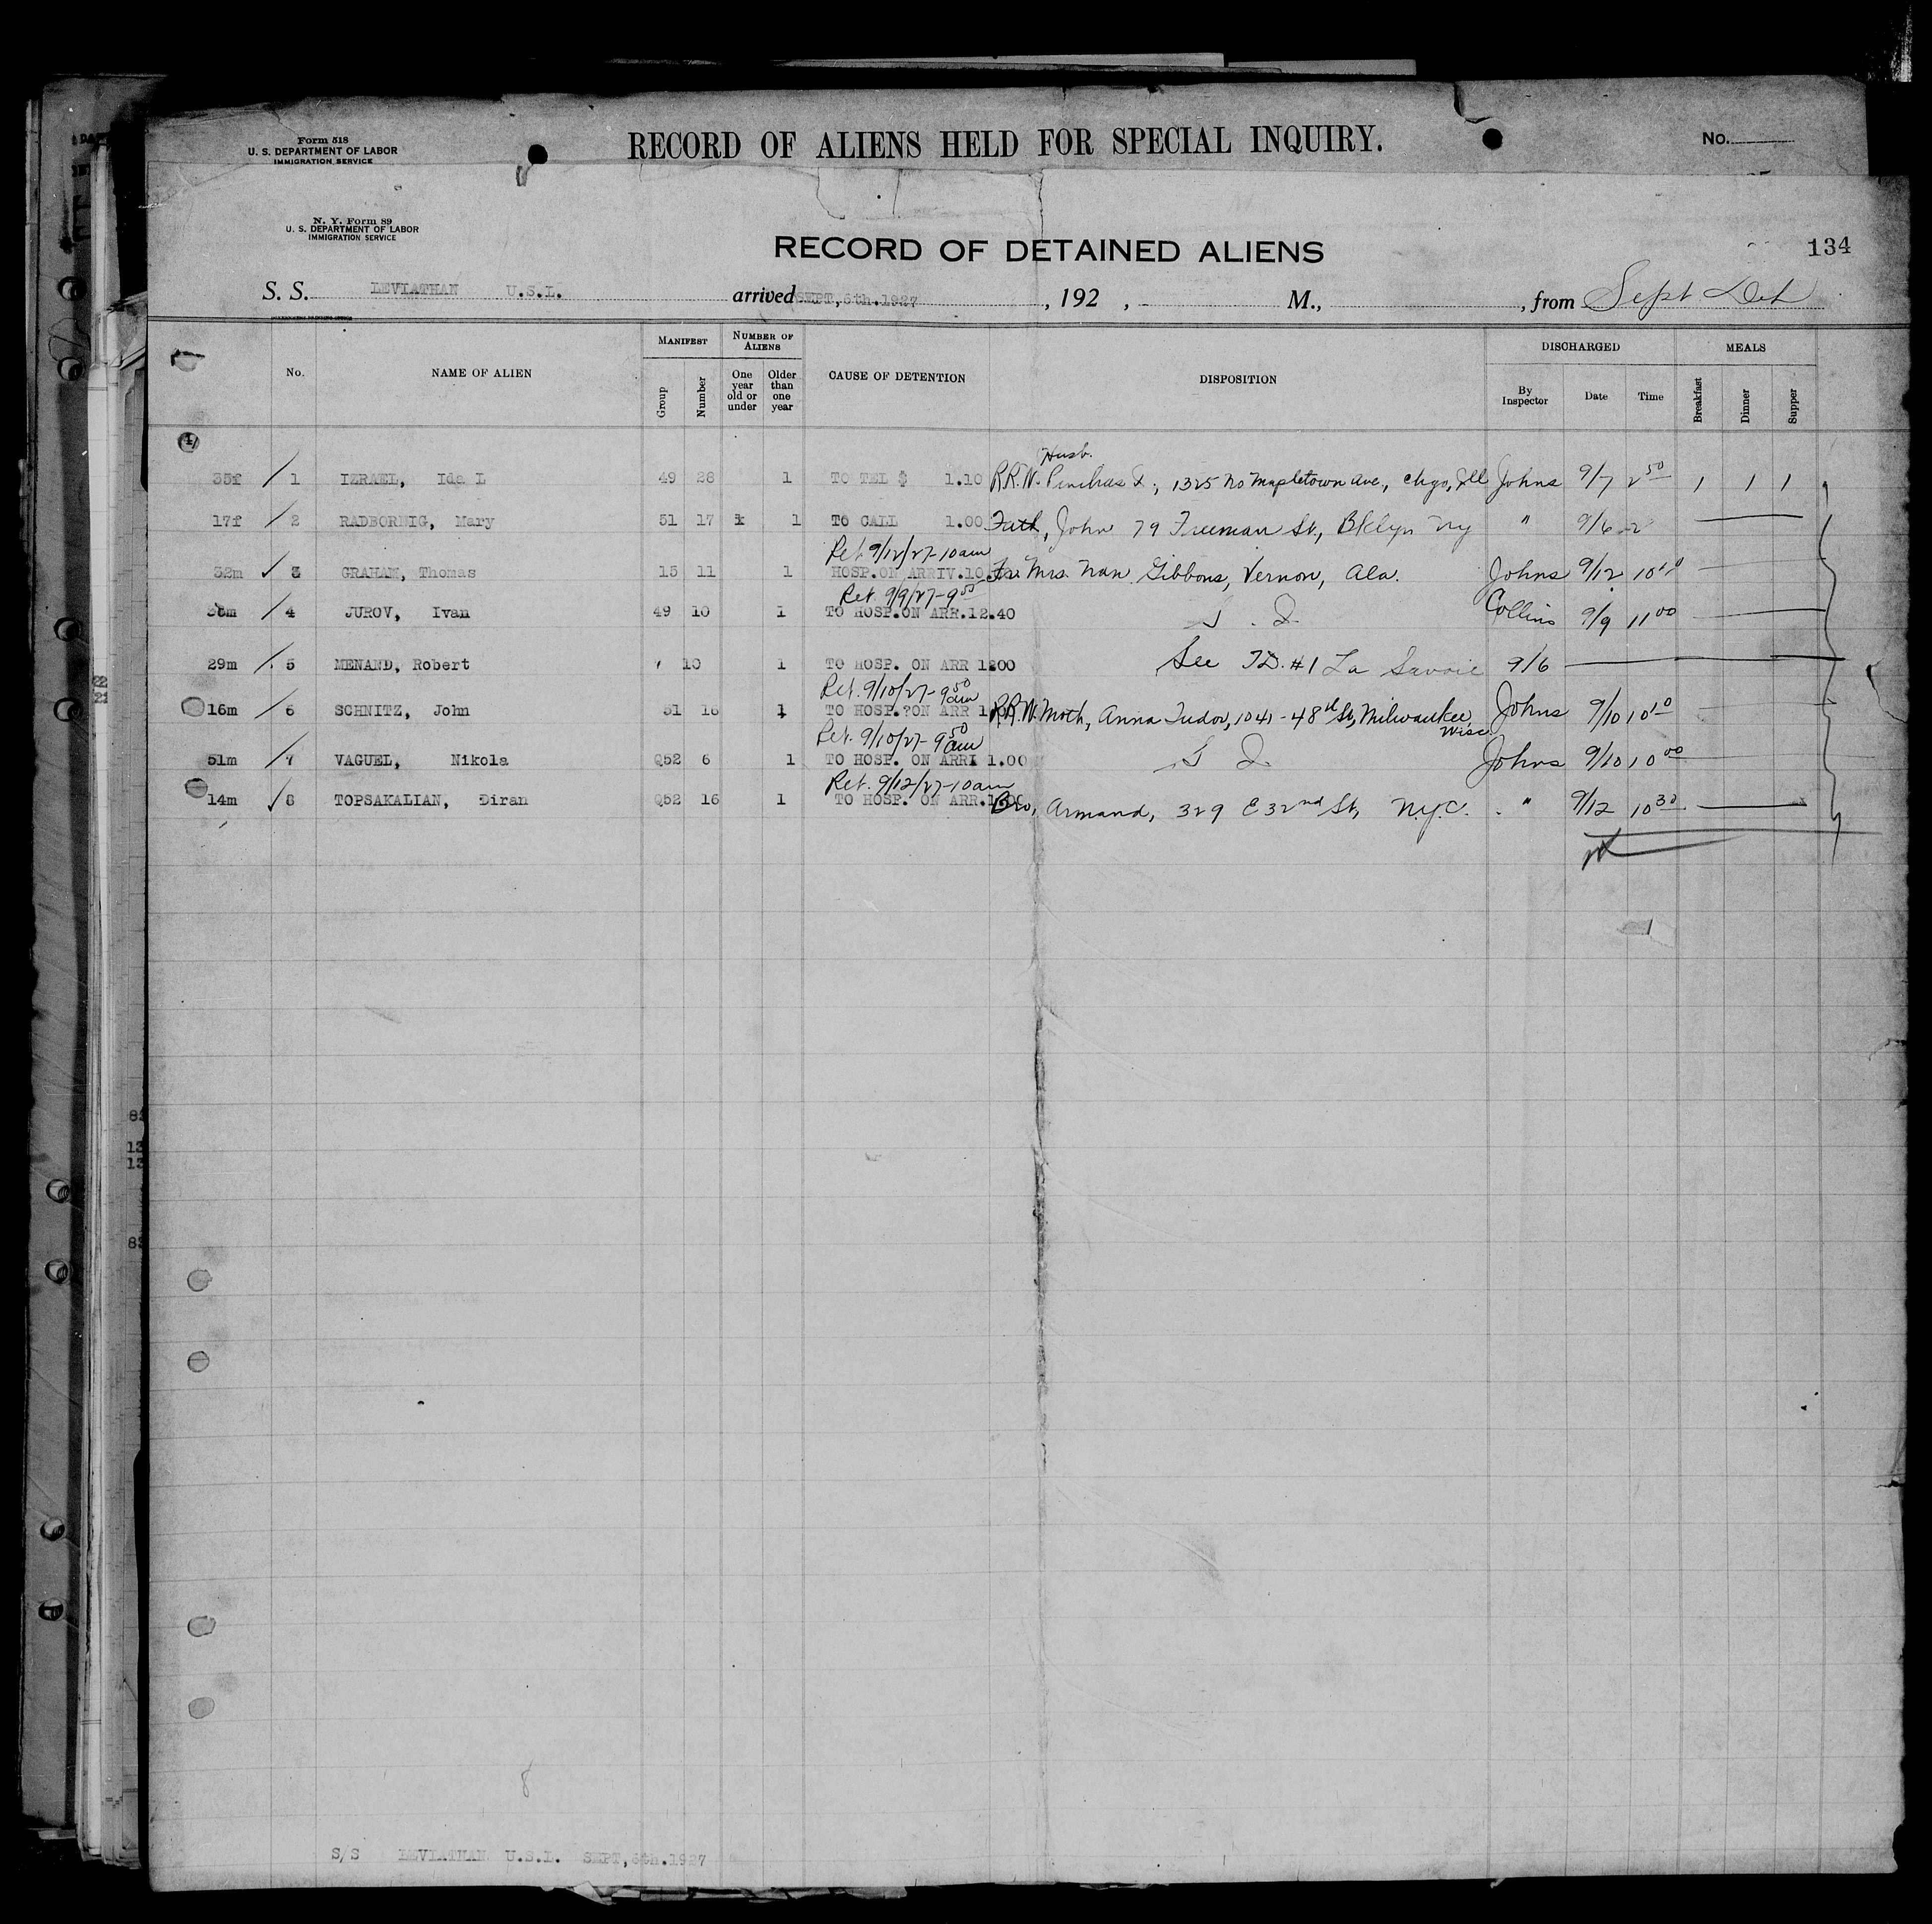 Form 518
U. S. DEPARTMENT OF LABOR
IMMIGRATION SERVICE
RECORD OF ALIENS HELD FOR SPECIAL INQUIRY.
No.
N. Y. Form 89
U. S. DEPARTMENT OF LABOR
IMMIGRATION SERVICE
RECORD OF DETAINED ALIENS
134
S. S. LEVIATHAN U.S.L. arrived SEPT, 192 , M., , from Sept Det
No. NAME OF ALIEN MANIFEST NUMBER OF ALIENS CAUSE OF DETENTION DISPOSITION DISCHARGED MEALS
Group Number One year old or under Older than one year By Inspector Date Time Breakfast Dinner Supper
Husb.
35f / 1 IZRAEL, Ida L 49 28 1 TO TEL $ 1.10 R.R.W. Pinchas I., 1325 No Mapletown Ave., Chgo, Ill Johns 9/7 2 50 1 1 1
17f / 2 RADBORNIG, Mary 51 17 1 TO CALL 1.00 Fath, John 79 Freeman St., Bklyn NY " 9/6
Ret 9/12/27-10am
32m ✓ 3 GRAHAM, Thomas 15 11 1 HOSP.ON ARRIV.10 Mrs. Nan Gibbons, Vernon, Ala. Johns 9/12 10
Ret. 9/9/27-9 55
/ 4 JUROV, Ivan 49 10 1 TO HOSP.ON ARR.12.40 S. I. Collins 9/9 11 00
29m / 5 MENAND, Robert 10 1 TO HOSP. ON ARR 1200 See T.D. #1 La Savoie 9/6
Ret. 9/10/27-9 50 am
16m / 6 SCHNITZ, John 51 1 TO HOSP.?ON ARR R.R.W. Moth, Anna Tudor, 1041-48th St, Milwaukee, Wisc. Johns 9/10 10 10
Ret. 9/10/27-9 50 am
51m / 7 VAGUEL, Nikola Q52 6 1 TO HOSP. ON ARRI 1.00 S I. Johns 9/10 10 00
Ret. 9/12/27-10am
14m ✓ 8 TOPSAKALIAN, Diran Q52 16 1 TO HOSP. ON ARR. Bro, Armand, 329 E 32nd St, N.Y.C. " 9/12 10 30
8
S/S LEVIATHAN U.S.L. SEPT,